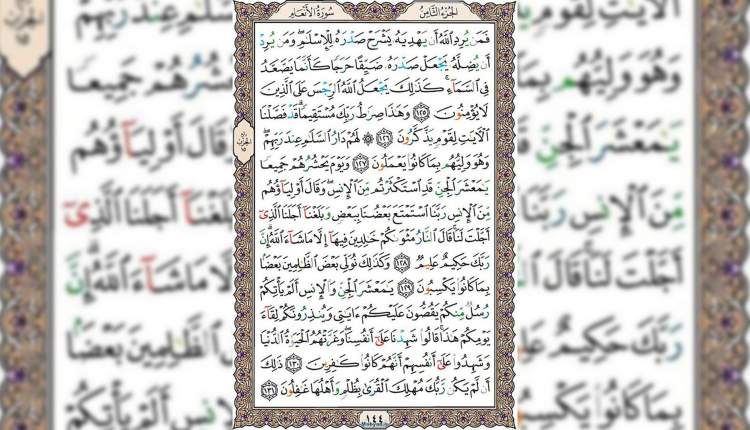 سُورَةُ الأَنْعَامِ
الجُزْءُ الثَّامِنُ
فَمَن يُرِدِ اللَّهُ أَن يَهْدِيَهُ يَشْرَحْ صَدْرَهُ لِلْإِسْلَٰمِ وَمَن يُرِدْ
أَن يُضِلَّهُ يَجْعَلْ صَدْرَهُ ضَيِّقًا حَرَجًا كَأَنَّمَا يَصَّعَّدُ
فِي السَّمَاءِ كَذَٰلِكَ يَجْعَلُ اللَّهُ الرِّجْسَ عَلَى الَّذِينَ
لَا يُؤْمِنُونَ ١٢٥ وَهَٰذَا صِرَٰطُ رَبِّكَ مُسْتَقِيمًا قَدْ فَصَّلْنَا
الْآيَٰتِ لِقَوْمٍ يَذَّكَّرُونَ ١٢٦ ۞ لَهُمْ دَارُ السَّلَٰمِ عِندَ رَبِّهِمْ
وَهُوَ وَلِيُّهُم بِمَا كَانُوا يَعْمَلُونَ ١٢٧ وَيَوْمَ يَحْشُرُهُمْ جَمِيعًا
يَٰمَعْشَرَ الْجِنِّ قَدِ اسْتَكْثَرْتُم مِّنَ الْإِنسِ وَقَالَ أَوْلِيَاؤُهُم
مِّنَ الْإِنسِ رَبَّنَا اسْتَمْتَعَ بَعْضُنَا بِبَعْضٍ وَبَلَغْنَا أَجَلَنَا الَّذِي
أَجَّلْتَ لَنَا قَالَ النَّارُ مَثْوَىٰكُمْ خَٰلِدِينَ فِيهَا إِلَّا مَا شَاءَ اللَّهُ إِنَّ
رَبَّكَ حَكِيمٌ عَلِيمٌ ١٢٨ وَكَذَٰلِكَ نُوَلِّي بَعْضَ الظَّٰلِمِينَ بَعْضًا
بِمَا كَانُوا يَكْسِبُونَ ١٢٩ يَٰمَعْشَرَ الْجِنِّ وَالْإِنسِ أَلَمْ يَأْتِكُمْ
رُسُلٌ مِّنكُمْ يَقُصُّونَ عَلَيْكُمْ ءَايَٰتِي وَيُنذِرُونَكُمْ لِقَاءَ
يَوْمِكُمْ هَٰذَا قَالُوا شَهِدْنَا عَلَىٰ أَنفُسِنَا وَغَرَّتْهُمُ الْحَيَوٰةُ الدُّنْيَا
وَشَهِدُوا عَلَىٰ أَنفُسِهِمْ أَنَّهُمْ كَانُوا كَٰفِرِينَ ١٣٠ ذَٰلِكَ
أَن لَّمْ يَكُن رَّبُّكَ مُهْلِكَ الْقُرَىٰ بِظُلْمٍ وَأَهْلُهَا غَٰفِلُونَ ١٣١
١٤٤